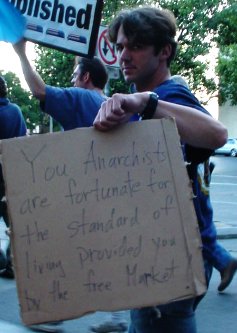 ublished
You Anarchists
are fortunate for
the standard of
living provided you
by the free Market!